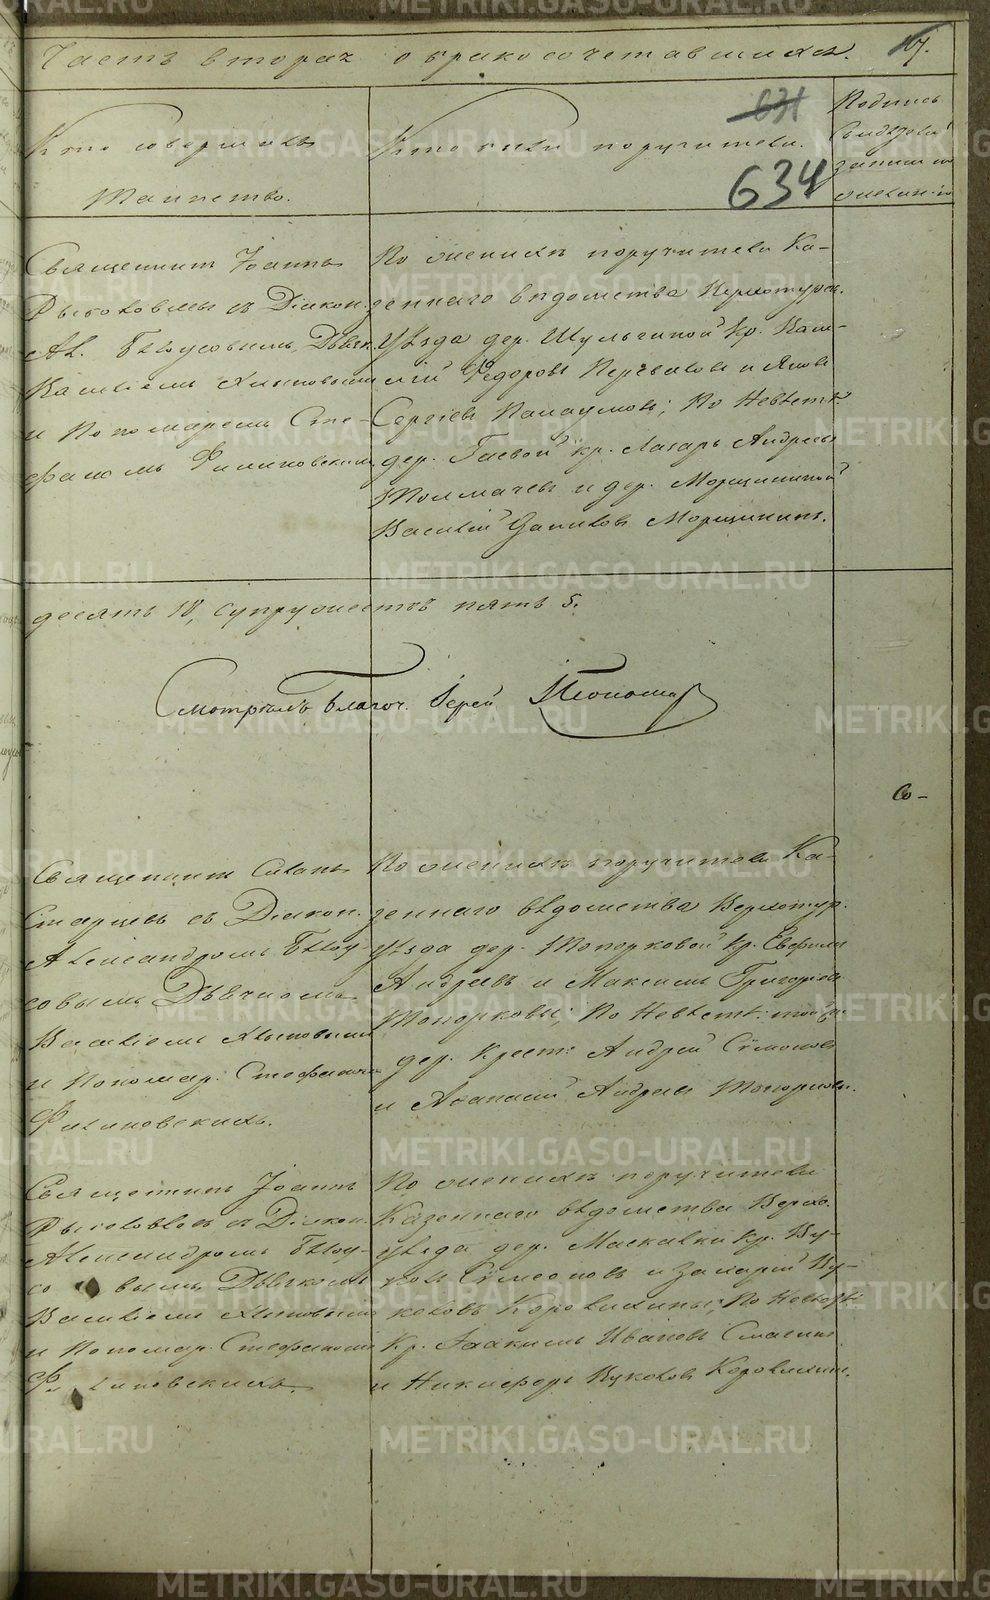 Часть вторая о бракосочетавшихся.
107.
Кто совершалъ
Таинство.
Кто были поручители.
631
634
Подпись
свидѣтелей
записи по
желанію
Священникъ Іоаннъ
съ Діакон.
Ал. Бѣлоусовымъ, Дьячк.
Василіемъ Хлыновымъ
и Пономаремъ Сте-
фаномъ Филиповскимъ
По женихѣ поручители Ка-
зеннаго вѣдомства Верхотурск.
уѣзда дер. Шульгиной кр. Васи-
лій Ѳедоровъ и Яковъ
Сергѣевъ Палаумовъ; По Невѣстѣ
дер. Гаевой кр. Лазарь Андреевъ
Толмачевъ и дер. Морщининой
Василій Даниловъ Морщининъ.
десять 18, супружествъ пять 5.
Смотрѣлъ благоч. Іерей Пономарев
Со-
Священникъ Стефанъ
Старцевъ съ Діакон.
Александромъ Бѣлоу-
совымъ Дьячкомъ
Василіемъ Хлыновымъ
и Пономар. Стефаномъ
Филиповскихъ.
По женихѣ поручители Ка-
зеннаго вѣдомства Верхотур.
уѣзда дер. Топорковой кр. Евфимъ
Андреевъ и Максимъ Григорьевъ
Топорковы; По Невѣстѣ: той же
дер. Крест: Андрей Симоновъ
и Аѳанасій Андреевъ Топорковы.
Священникъ Іоаннъ
съ Діакон.
Александромъ Бѣлоу-
совымъ, Дьячкомъ
Василіемъ Хлыновымъ
и Пономар. Стефаномъ
Филиповскихъ.
По женихѣ поручители
Казеннаго вѣдомства Верхо.
уѣзда дер. Маскалки кр. Ву-
колъ Симеоновъ и Захарій Ву-
коловъ Коровлиныхъ; По Невѣстѣ:
кр. Іоакимъ Ивановъ Смагинъ
и Никифоръ Вуколовъ Коровлиныхъ.
METRIKI.GASO-URAL.RU